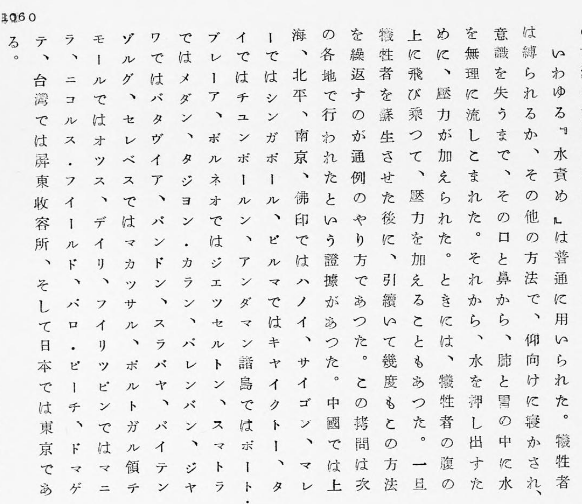 1060
いわゆる『水責め』は普通に用いられた。犧牲者
は縛られるか、その他の方法で、仰向けに寝かされ、
意識を失うまで、その口と鼻から、肺と胃の中に水
を無理に流しこまれた。それから、水を押し出すた
めに、壓力が加えられた。ときには、犧牲者の腹の
上に飛び乘つて、壓力を加えることもあつた。一旦
犧牲者を蘇生させた後に、引續いて幾度もこの方法
を繰返すのが通例のやり方であつた。この拷問は次
の各地で行われたという證據があつた。中國では上
海、北平、南京、佛印ではハノイ、サイゴン、マレ
ーではシンガポール、ビルマではキヤイクトー、タ
イではチユンポールン、アンダマン諸島ではポート・
ブレーア、ボルネオではジエツセルトン、スマトラ
ではメダン、タジヨン・カラン、パレンバン、ジヤ
ワではバタヴイア、バンドン、スラバヤ、バイテン
ゾルグ、セレベスではマカツサル、ポルトガル領テ
モールではオツス、デイリ、フイリツピンではマニ
ラ、ニコルス・フイールド、パロ・ビーチ、ドマゲ
テ、台灣では屛東收容所、そして日本では東京であ
る。